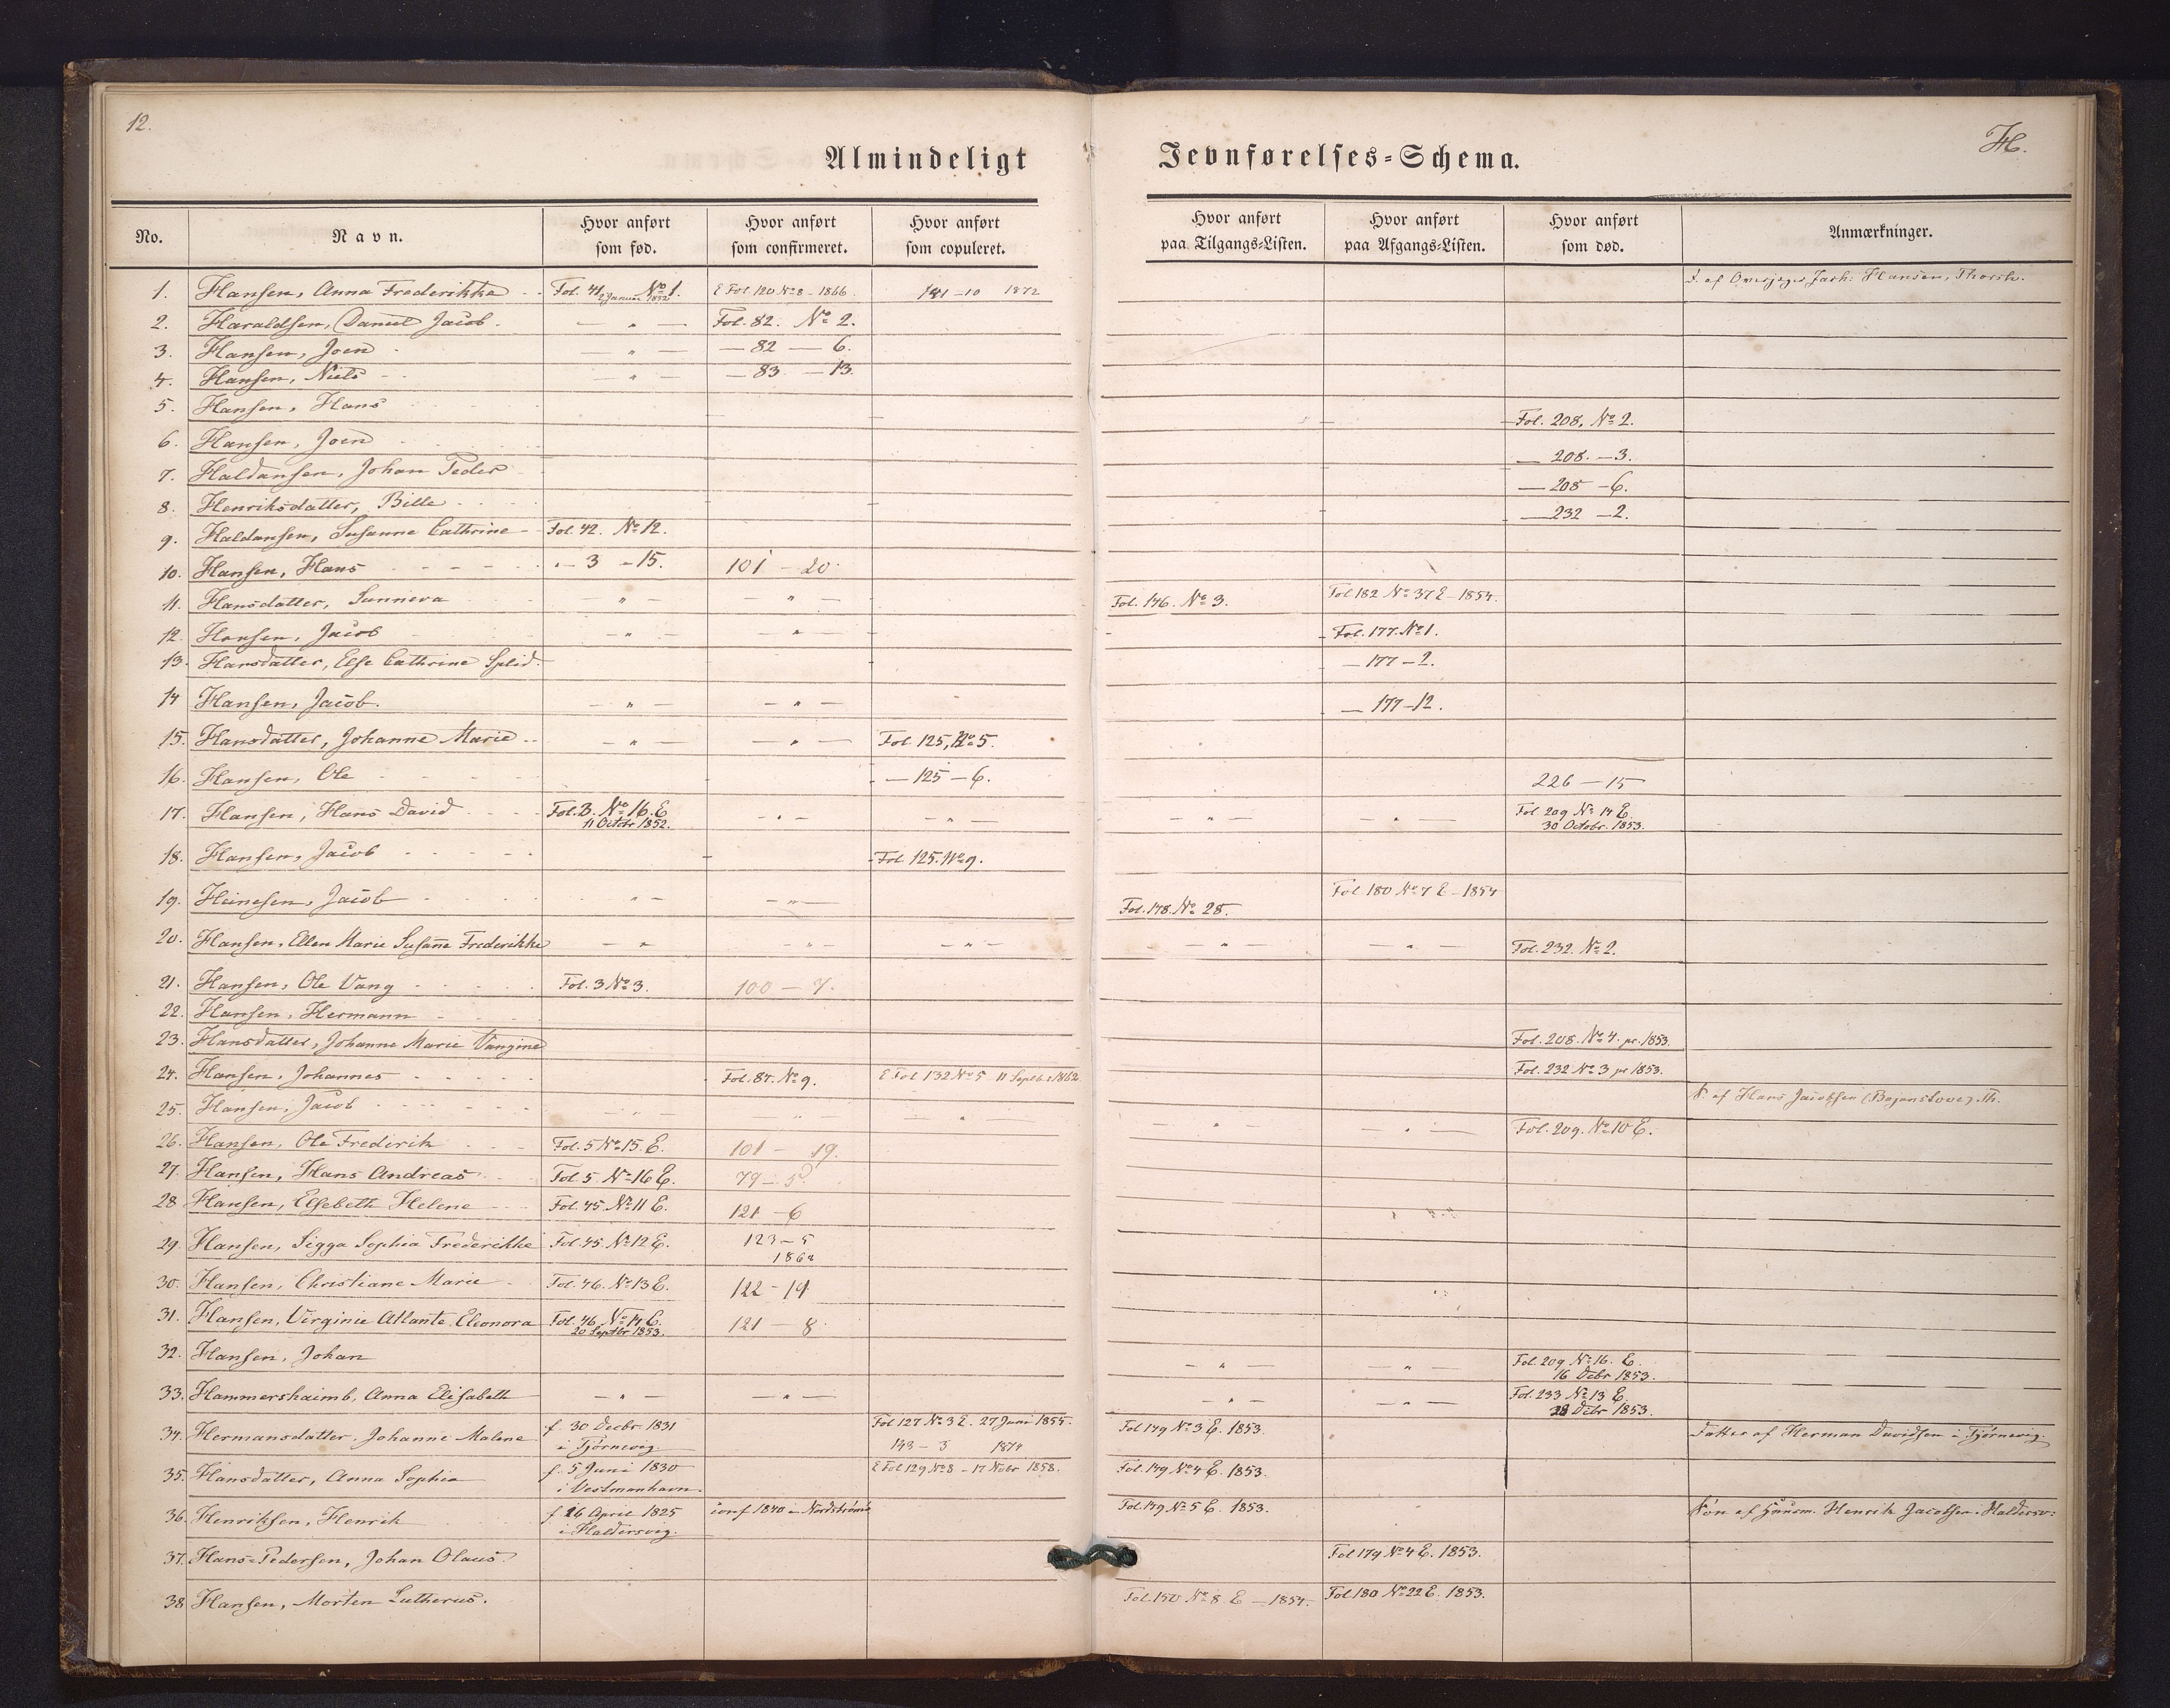 12.
H.
Almindeligt Jevnførelses-Schema.
No. Navn. Hvor anført som fød. Hvor anført som confirmeret. Hvor anført som copuleret. Hvor anført paa Tilgangs-Listen. Hvor anført paa Afgangs-Listen. Hvor anført som død. Anmærkninger.
1. Hansen, Anna Frederikke Fol. 41 No 1. 2 Januar 1852 E Fol 120 No 8 - 1866 141 - 10 1872 Hansen, Thorsh.
2. Haraldsen, Daniel Jacob. — " — Fol. 82. No 2.
3. Hansen, Joen — " — — 82 — 6.
4. Hansen, Niels — " — — 83 — 13.
5. Hansen, Hans Fol. 208, No 2.
6. Hansen, Joen — 208. — 3.
7. Haldansen, Johan Peder — 208 — 6.
8. Henriksdatter, Bille — 232 — 2.
9. Haldansen, Susanne Cathrine Fol. 42. No 12.
10. Hansen, Hans — 3 — 15. 101 — 20.
11. Hansdatter, Sunneva — " — — " — Fol. 146. No 3. Fol 182 No 37 E - 1854.
12. Hansen, Jacob — " — — " — Fol. 177. No 1.
13. Hansdatter, Else Cathrine Splid. — 177 — 2.
14 Hansen, Jacob. — " — — " — — 177 — 12.
15. Hansdatter, Johanne Marie — " — — " — Fol. 125, No 5.
16. Hansen, Ole — 125 — 6. 226 — 15
17. Hansen, Hans David Fol. 3. No 16. E 11 Octobr 1852. — " — — " — — " — — " — Fol. 209 No 14 E. 30 Octobr. 1853.
18. Hansen, Jacob Fol 125. No 9.
19. Heinesen, Jacob — " — — " — Fol. 178. No 28. Fol 180 No 7 E - 1854
20. Hansen, Ellen Marie Susanne Frederikke — " — — " — — " — — " — — " — Fol. 232. No 2.
21. Hansen, Ole Vang Fol. 3 No 3. 100 — 7.
22. Hansen, Hermann
23. Hansdatter, Johanne Marie Vangine Fol. 208. No 4. pr. 1853.
24. Hansen, Johannes Fol. 87. No 9. E Fol 132 No 5 11 Septbr 1862 Fol. 232 No 3 pr 1853.
25. Hansen, Jacob — " — — " — " — " — — " — Fol. 209. No 10 E. S. af Hans Jacobsen Th.
26. Hansen, Ole Frederik Fol. 5 No 15. E. 101 — 19.
27. Hansen, Hans Andreas Fol. 5. No 16 E. 79 — 5
28 Hansen, Elsebeth Helene Fol. 45. No 11 E. 121 — 6
29. Hansen, Sigga Sophia Frederikke Fol. 45. No 12 E. 123 — 5
30. Hansen, Christiane Marie Fol. 46. No 13 E. 122 — 19
31. Hansen, Virginie Atlante Eleonora Fol. 46. No 14 E. 20 Septbr 1853. 121 — 8
32. Hansen, Johan — " — — " — Fol. 209 No 16. E. 16 Decbr 1853.
33. Hammershaimb, Anna Elisabeth — " — — " — — " — — " — Fol. 233 No 13 E 28 Decbr 1853.
34. Hermansdatter, Johanne Malene f. 30 Decbr 1831 i Tjørnevig. Fol 127 No 3 E. 27 Juni 1855. 143 — 3 1874 Fol 149 No 3 E. 1853. Datter af Herman Davidsen i Tjørnevig.
35. Hansdatter, Anna Sophia f. 5 Juni 1830 i Vestmanhavn. E Fol 129 No 8 - 17 Novbr 1858. Fol. 149 No 4 E. 1853.
36. Henriksen, Henrik f 26 April 1825 i Haldersvig. conf 1840 i Nordstrømø Fol. 149 No 5 E. 1853. Søn af Huusm. Henrik Jacobsen i Haldersv:
37. Hans-Pedersen, Johan Olaus. Fol 179 No 4 E. 1853.
38 Hansen, Morten Lutherus. Fol. 150 No 8 E - 1854. Fol 180 No 22 E. 1853.